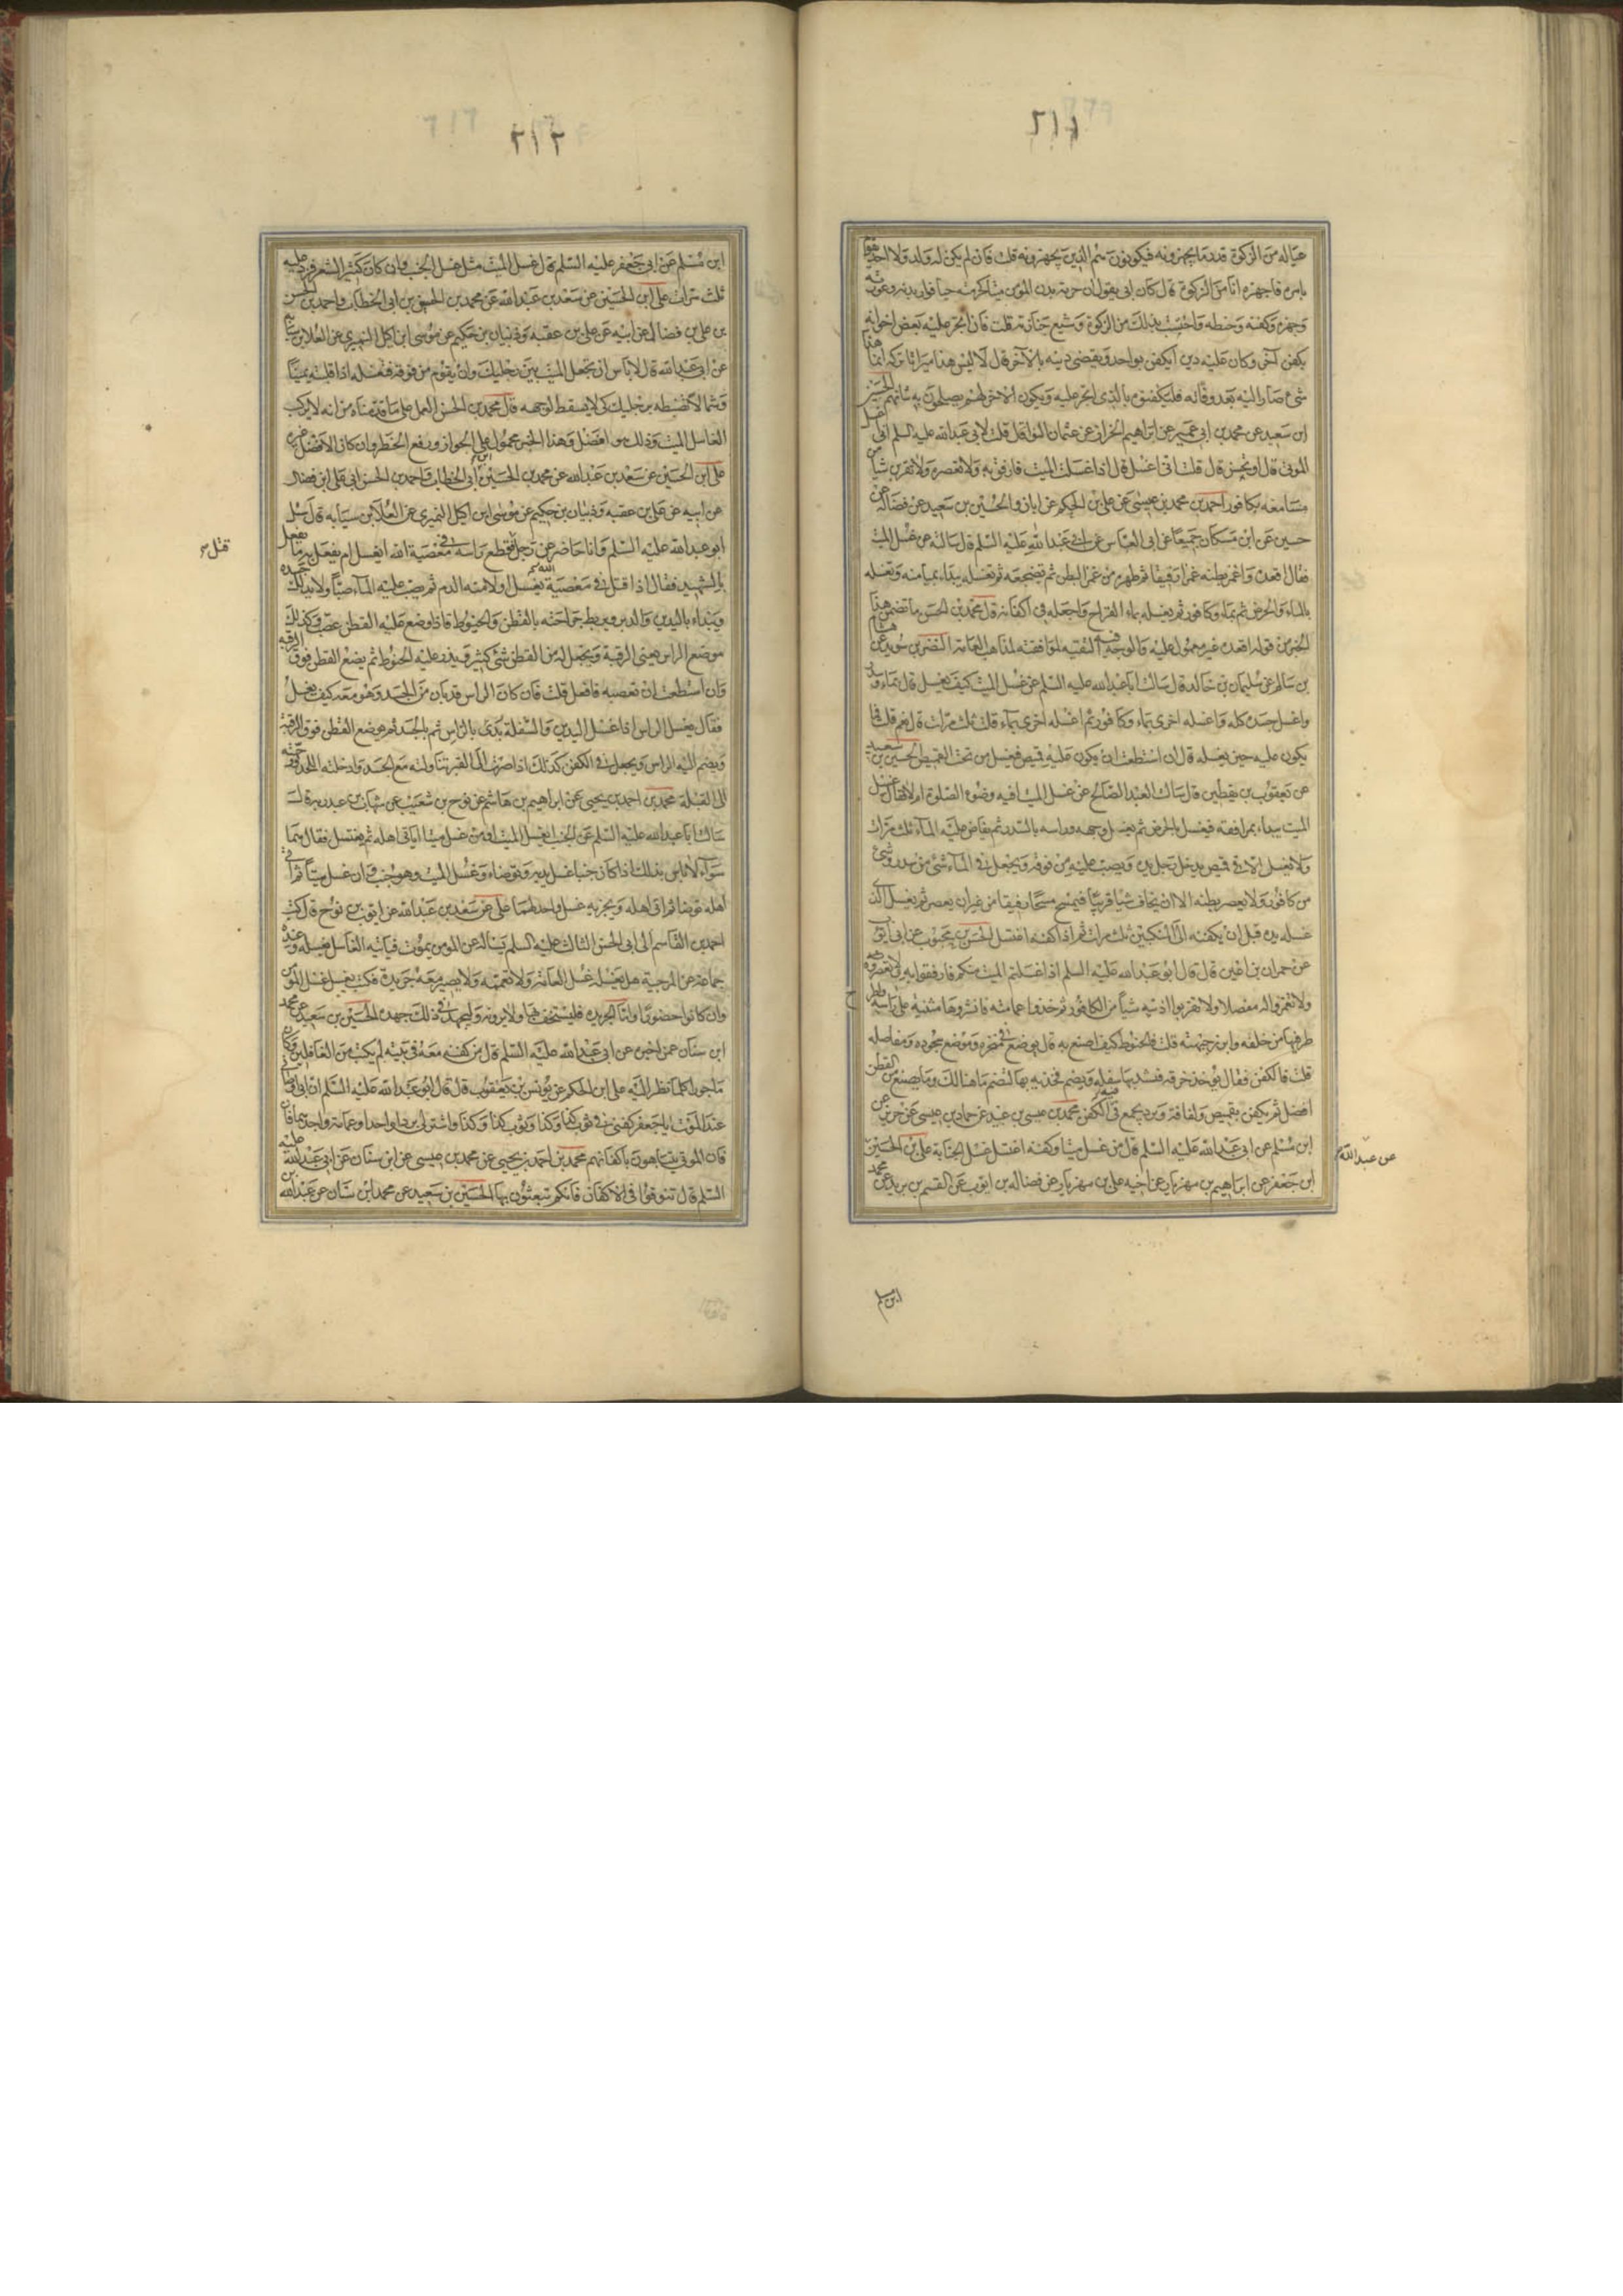 ٢١١
عياله من الزكوة قدر ما يجهزونه فيكونون هم الذين يجهزونه قلت فان لم يكن له ولد ولا احد يقوم
بامره فاجهزه انا من الزكوة قال كان ابي يقول ان حرمة بدن المؤمن ميتا كحرمته حيا فوار بدنه وعورته
وجهزه وكفنه وحنطه واحتسب بذلك من الزكوة وشيع جنازته قلت فان اتجر عليه بعض اخوانه
بكفن آخر وكان عليه دين ايكفن بواحد ويقضى دينه بالآخر قال لا ليس هذا ميراثا تركه انما هذا
شئ صار اليه بعد وفاته فليكفنوه بالذي اتجر عليه ويكون الآخر لهم يصلحون به شانهم الحسين
ابن سعيد عن محمد بن ابي عمير عن ابراهيم الخزاز عن عثمان النوا قال قلت لابي عبد الله عليه السلم اني اغسل
الموتى قال او تحسن قال قلت اني اغسل قال اذا غسلت الميت فارفق به ولا تعصره ولا تقربن شيأ من
مسامعه بكافور احمد بن محمد بن عيسى عن علي بن الحكم عن ابان والحسين بن سعيد عن فضالة عن
حسين عن ابن مسكان جميعا عن ابي العباس عن ابي عبد الله عليه السلم قال سالته عن غسل الميت
فقال اقعده واغمز بطنه غمزا رفيقا ثم طهره من غمز البطن ثم تضجعه ثم تغسله يبداء بميامنه وتغسله
بالماء والحرض ثم بماء وكافور ثم يغسله بماء القراح واجعله في اكفانه قال محمد بن الحسن ما تضمن هذا
الخبر من قوله اقعده غير معمول عليه والوجه فيه التقيه لموافقته لمذاهب العامة النضر بن سويد عن هشام
بن سالم عن سليمان بن خالد قال سالت ابا عبد الله عليه السلم عن غسل الميت كيف يغسل قال بماء وسدر
واغسل جسده كله واغسله اخرى بماء وكافور ثم اغسله اخرى بماء قلت ثلث مرات قال نعم قلت فما
يكون عليه حين يغسله قال ان استطعت ان يكون عليه قميص فيغسل من تحت القميص الحسين بن سعيد
عن يعقوب بن يقطين قال سالت العبد الصالح عن غسل الميت افيه وضوء الصلوة ام لا فقال غسل
الميت يبداء بمرافقه فيغسل بالحرض ثم يغسل وجهه وراسه بالسدر ثم يفاض عليه الماء ثلث مرات
ولا يغسل الا في قميص يدخل رجل يده ويصب عليه من فوقه ويجعل في الماء شئ من سدر وشئ
من كافور ولا يعصر بطنه الا ان يخاف شيا قريبا فيمسح مسحا رفيقا من غير ان يعصر ثم يغسل الذي
غسله يده قبل ان يكفنه الى المنكبين ثلث مرات ثم اذا كفنه اغتسل الحسن بن محبوب عن ابي ايوب
عن حمران بن اعين قال قال ابو عبد الله عليه السلم اذا غسلتم الميت منكم فارفقوا به ولا تعصروه
ولا تغمزوا له مفصلا ولا تقربوا اذنيه شيأ من الكافور ثم خذوا عمامته فانشروها مثنية على راسه واطرح
طرفيها من خلفه وابرز جبهته قلت فالحنوط كيف اصنع به قال يوضع في منخره وموضع سجوده ومفاصله
قلت فالكفن فقال يؤخذ خرقة فيشد بها سفله ويضم فخذيه بها ليضم ما هنالك وما يصنع من القطن
افضل ثم يكفن بقميص ولفافة وبرد يجمع فيه الكفن محمد بن عيسى بن عبيد عن حماد بن عيسى عن حريز عن
ابن مسلم عن ابي عبد الله عليه السلم قال من غسل ميتا وكفنه اغتسل غسل الجنابة علي بن الحسين
ابن جعفر عن ابراهيم بن مهزيار عن اخيه علي بن مهزيار عن فضالة بن ايوب عن القسم بن بريد عن محمد
عن عبد الله
ابن مسلم
٢١٢
ابن مسلم عن ابي جعفر عليه السلم قال غسل الميت مثل غسل الجنب وان كان كثير الشعر فزد عليه
ثلث مرات علي ابن الحسين عن سعد بن عبد الله عن محمد بن الحسين بن ابي الخطاب واحمد بن الحسن
بن علي بن فضال عن ابيه عن علي بن عقبة وذبيان بن حكيم عن موسى ابن اكيل النميري عن العلا بن سيابه
عن ابي عبد الله قال لا باس ان تجعل الميت بين رجليك وان يقوم من فوقه فتغسله اذا قلبته يمينا
وشمالا تضبطه برجليك كي لا يسقط لوجهه قال محمد بن الحسن العمل على ما قدمناه من انه لا يركب
الغاسل الميت وذلك هو افضل وهذا الخبر محمول على الجواز ورفع الحظر وان كان الافضل غيره
علي ابن الحسين عن سعد بن عبد الله عن محمد بن الحسين ابن ابي الخطاب واحمد بن الحسن ابن علي ابن فضال
عن ابيه عن علي بن عقبة وذبيان بن حكيم عن موسى ابن اكيل النميري عن العلا بن سيابه قال سئل
ابو عبد الله عليه السلم وانا حاضر عن رجل فقطع راسه في معصية الله ايغسل ام يفعل به ما يفعل
بالشهيد فقال اذا قتل في معصية الله يغسل اولا منه الدم ثم يصب عليه الماء صبا ولا يدلك جسده
ويبداء باليدين والدبر ويربط جراحته بالقطن والحنوط فاذا وضع عليه القطن عصب وكذلك
موضع الراس يعني الرقبة ويجعل له من القطن شئ كثير ويذر عليه الحنوط ثم يضع القطن فوق الرقبه
وان استطعت ان تعصبه فافعل قلت فان كان الراس قد بان من الجسد وهو معه كيف يغسل
فقال يغسل الراس اذا غسل اليدين والسفلة بدئ بالراس ثم بالجسد ثم يوضع القطن فوق الرقبة
ويضم اليه الراس ويجعل في الكفن كذلك اذا صرت الى القبر تناولته مع الجسد وادخلته اللحد ووجهته
الى القبلة محمد بن احمد بن يحيى عن ابراهيم بن هاشم عن نوح بن شعيب عن شهاب بن عبد ربه قال
سالت ابا عبد الله عليه السلم عن الجنب ايغسل الميت او من غسل ميتا اياتي اهله ثم يغتسل فقال هما
سواء لا باس بذلك اذا كان جنبا غسل يديه وتوضاء وغسل الميت وهو جنب وان غسل ميتا ثم اتى
اهله توضا ثم اتى اهله ويجزيه غسل واحد لهما علي عن سعد بن عبد الله عن ايوب بن نوح قال كتب
احمد بن القاسم الى ابي الحسن الثالث عليه السلم يساله عن المومن يموت فياتيه الغاسل يغسله وعنده
جماعة من المرجية هل يغسله غسل العامة ولا تعممه ولا يصير معه جريدة فكتب يغسل غسل المؤمن
وان كانوا حضورا واما الجريده فليستخف بها ولا يرونه وليجهد في ذلك جهده الحسين بن سعيد عن محمد
ابن سنان عمن اخبره عن ابي عبد الله عليه السلم قال من كفنه معه في بيته لم يكتب من الغافلين وكان
ماجورا كلما نظر اليه علي ابن الحكم عن يونس بن يعقوب قال قال ابو عبد الله عليه السلم ان ابي اوصاني
عند الموت يا جعفر كفني في ثوب كذا وكذا وثوب كذا وكذا واشتر لي بردا واحدا وعمامة واجدهما فان
فان الموتى يتباهون باكفانهم محمد بن احمد بن يحيى عن محمد بن عيسى عن ابن سنان عن ابي عبد الله عليه
السلم قال تنوقوا في الاكفان فانكم تبعثون بها الحسين بن سعيد عن محمد ابن سنان عن عبد الله بن
قتل